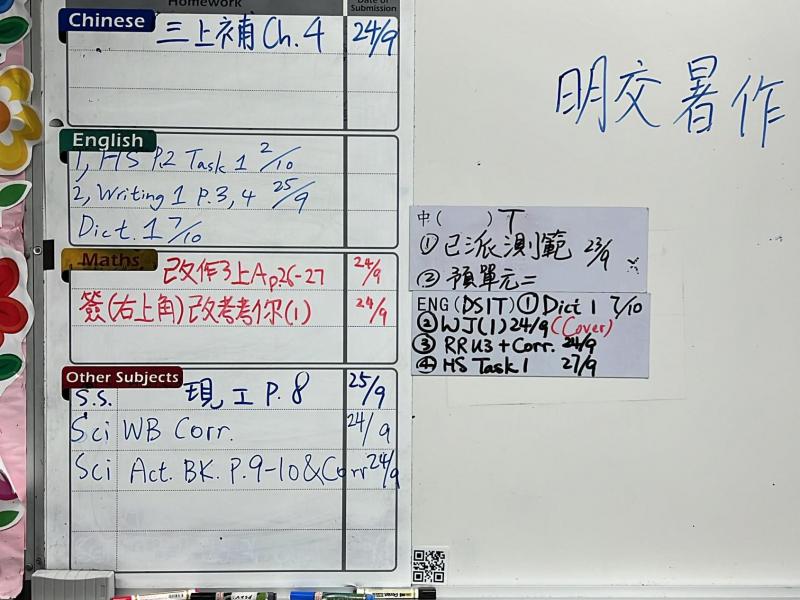 Homework
Date of Submission
Chinese
三上補 Ch. 4 24/9
English
1, HS P.2 Task 1 2/10
2, Writing 1 P.3, 4 25/9
Dict. 1 7/10
Maths
改作3上A p.26-27 24/9
簽(右上角)改考考你(1) 24/9
Other Subjects
S.S. 現工 P. 8 25/9
Sci WB Corr. 24/9
Sci Act. BK. P.9-10 & Corr 24/9
明交暑作
中( )T
① 已派測範 23/9
② 預單元二
ENG (DSIT) ① Dict 1 7/10
② WJ(1) 24/9 (Cover)
③ RR U3 + Corr. 24/9
④ HS Task 1 27/9